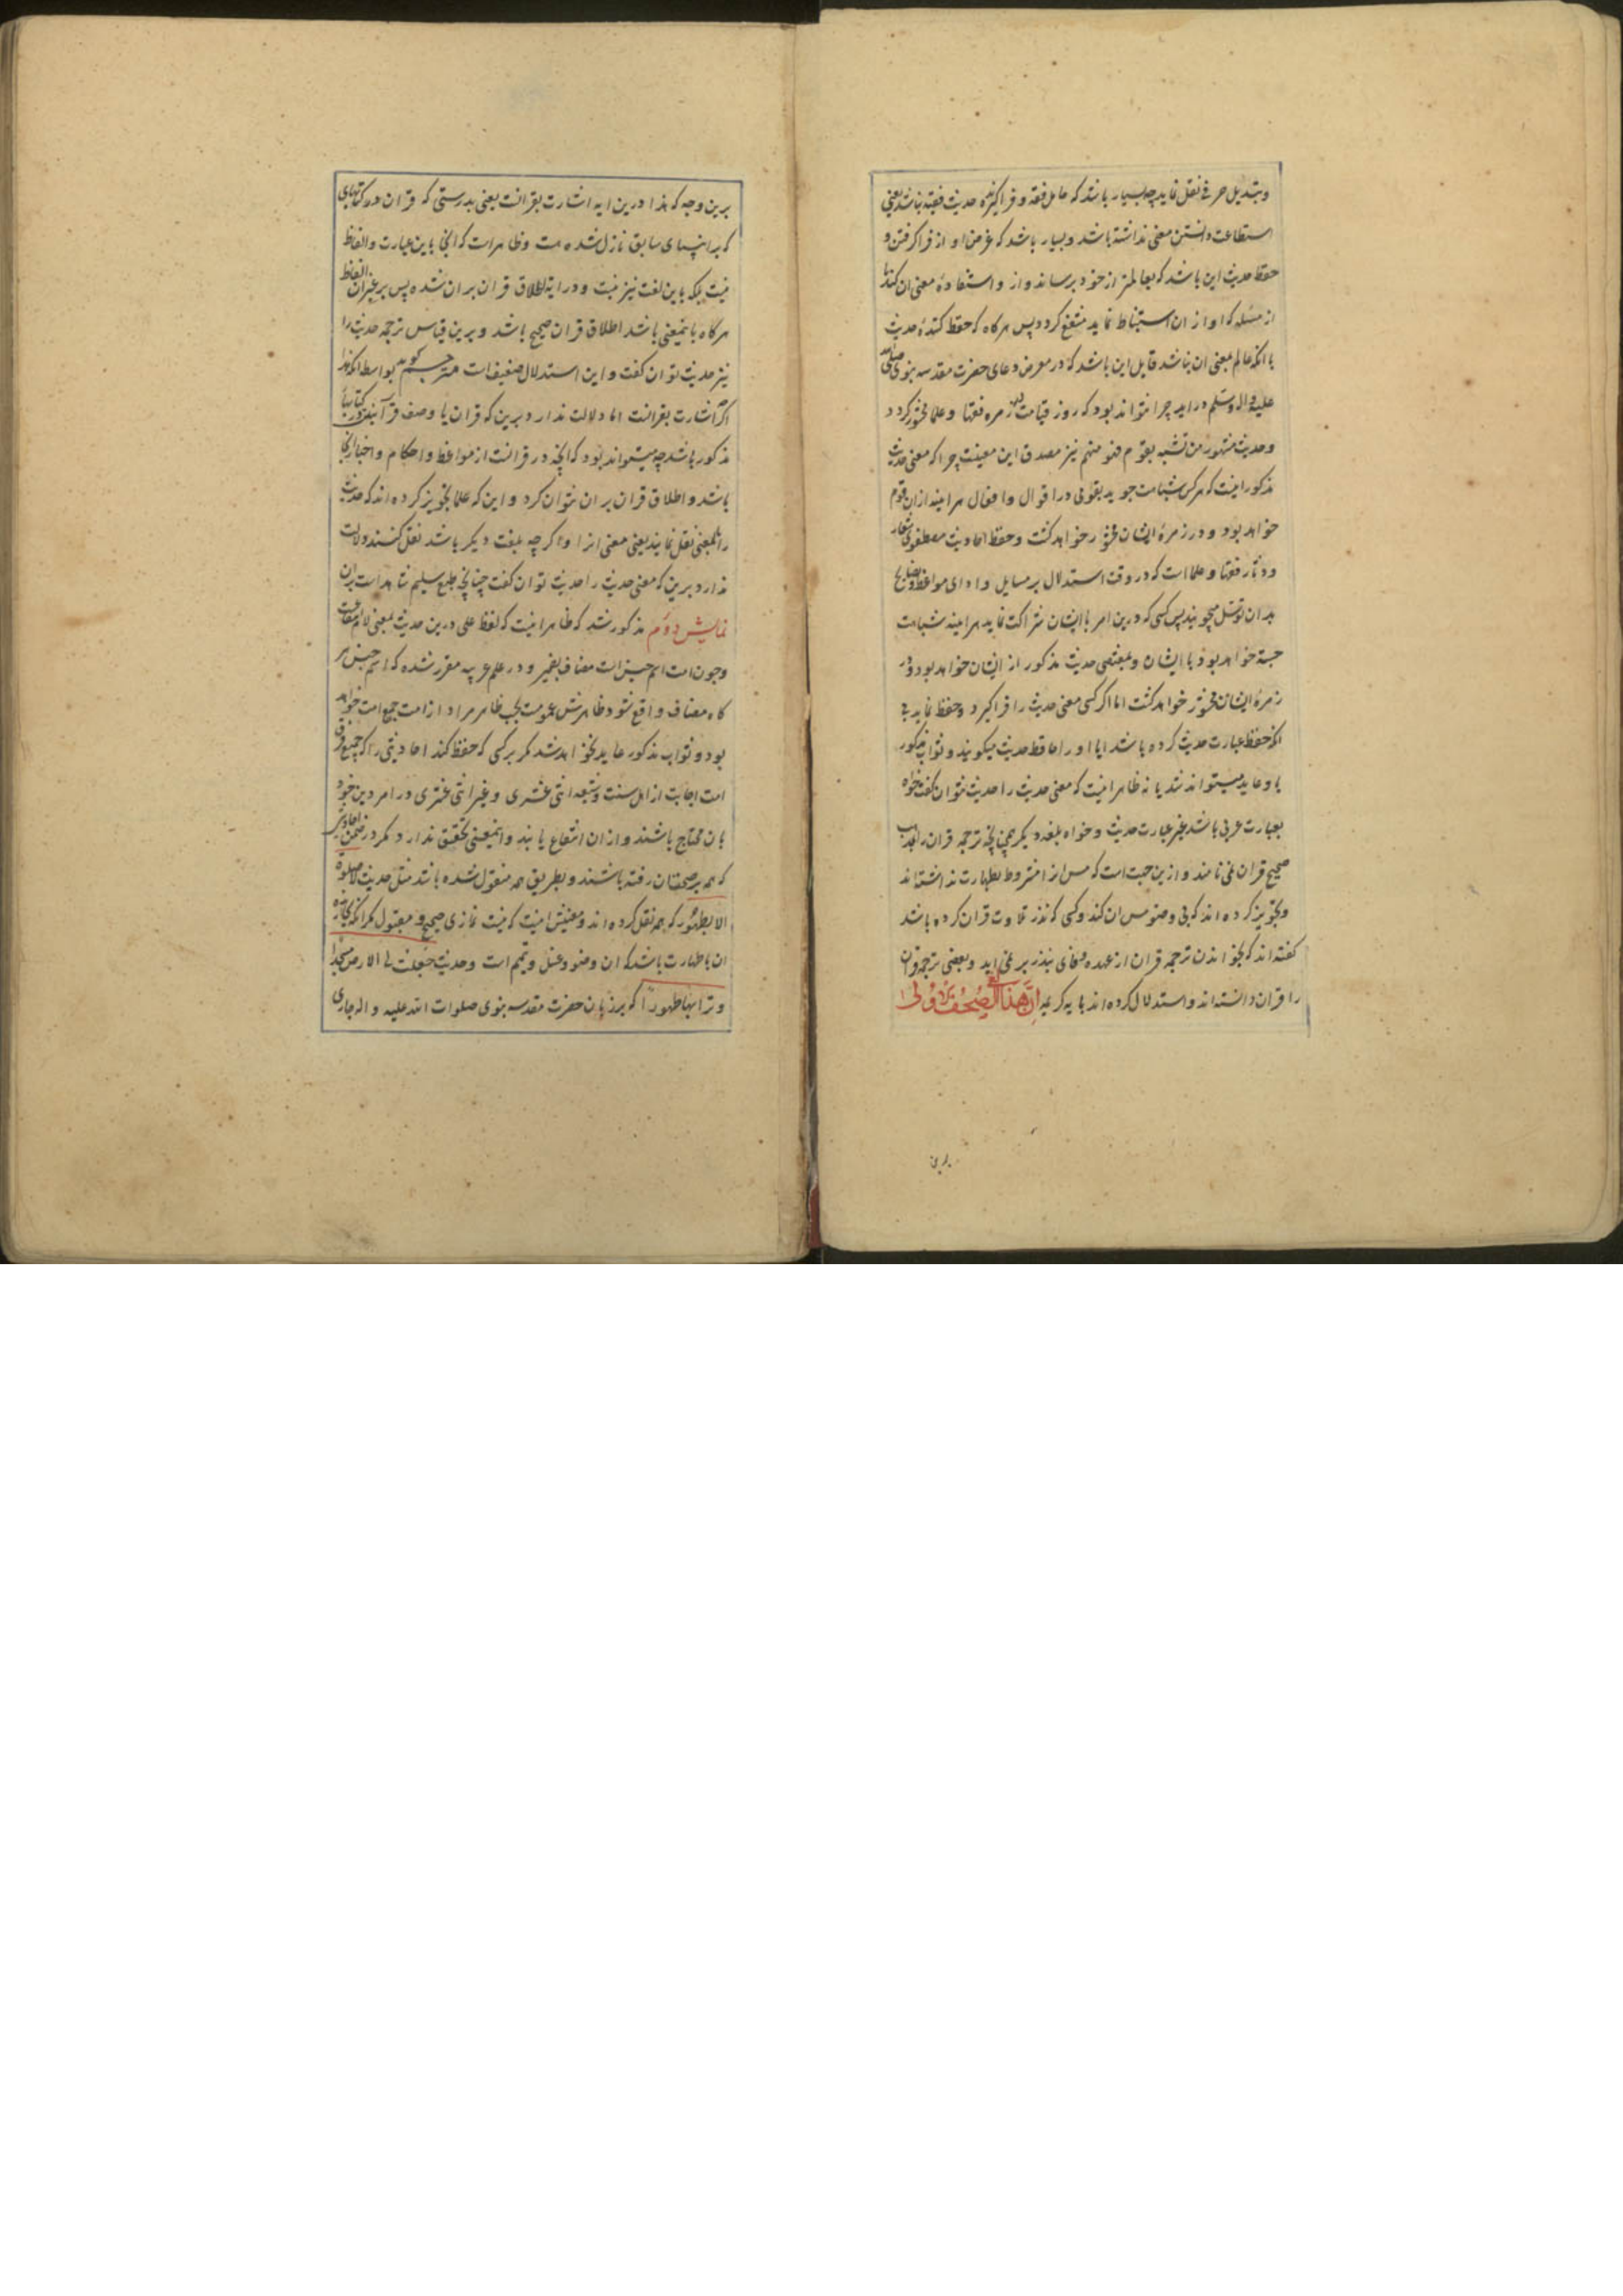 و تبدیل حرفی نقل نماید چه بسیار باشد که حامل فقه و فراگیرنده حدیث فقیه نباشد یعنی
استطاعت دانستن معنی نداشته باشد و بسیار باشد که غرض او از فراگرفتن و
حفظ حدیث این باشد که بعالمتر از خود برساند و از و استفاده معنی ان کند تا
از مسئله که او از ان استنباط نماید منتفع کردد پس هرکاه که حفظ کنندۀ حدیث
با انکه عالم بمعنی ان نباشد قابل این باشد که در معرض دعای حضرت مقدسه نبوی صلی الله
علیه و اله وسلم در اید چرا نتواند بود که روز قیامت در زمره فقها و علما محشور کردد
و حدیث مشهور من تشبه بقوم فهو منهم نیز مصدق این معنیست چرا که معنی حدیث
مذکور اینست که هرکس شباهت جوید بقومی در اقوال و افعال هراینه از ان قوم
خواهد بود و در زمرۀ ایشان محشور خواهد کشت و حفظ احادیث مصطفوی شعار
و دثار فقها و علما است که در وقت استدلال بر مسایل و ادای مواعظ و نصایح
بدان توسل میجویند پس کسی که درین امر با ایشان شراکت نماید هراینه شباهت
جسته خواهد بود با ایشان و بمقتضی حدیث مذکور از ایشان خواهد بود و در
زمرۀ ایشان محشور خواهد کشت اما اکر کسی معنی حدیث را فراکیرد و حفظ نماید بی
انکه حفظ عبارت حدیث کرده باشد ایا او را حافظ حدیث میکویند و ثواب مذکور
باو عاید میتواند شد یا نه ظاهر اینست که معنی حدیث را حدیث نتوان کفت خواه
بعبارت عربی باشد غیر عبارت حدیث و خواه بلغة دیکر همچنانچه ترجمه قران را بمذهب
صحیح قران نمی نامند و ازین جهت است که مس انرا مشروط بطهارت نداشته اند
و تجویز کرده اند که بی وضو مس ان کند و کسی که نذر تلاوت قران کرده باشد
کفته اند که بخواندن ترجمه قران از عهده وفای بنذر بر نمی اید و بعضی ترجمه قران
را قران دانسته اند و استدلال کرده اند بایه کریمه ان هذا لفی الصحف الاولی
برین
برین وجه که هذا درین ایه اشارت بقرانست یعنی بدرستی که قران در کتابهای
که به انبیای سابق نازل شده هست و ظاهر است که انجا باین عبارت و الفاظ
نیست بلکه باین لغت نیز نیست و در ایه اطلاق قران بران شده پس بر غیر ان الفاظ
هرکاه باینمعنی باشد اطلاق قران صحیح باشد و برین قیاس ترجمه حدیث را
نیز حدیث توان کفت و این استدلال ضعیف است مترجم کوید بواسطه انکه هذا
اکرچه اشارت بقرانست اما دلالت ندارد برین که قران با وصف قرآنیت در کتابها
مذکور باشد چه میتواند بود که انچه در قرانست از مواعظ و احکام و اخبار انجا
باشد و اطلاق قران بران نتوان کرد و این که علما تجویز کرده اند که حدیث
را بمعنی نقل نمایند یعنی معنی انرا اکرچه بلغت دیکر باشد نقل کنند دلالت
ندارد برین که معنی حدیث را حدیث توان کفت چنانچه طبع سلیم شاهد است بران
نمایش دوم مذکور شد که ظاهر اینست که لفظ علی درین حدیث بمعنی لام است
و چون امت اسم جنس است مضاف بضمیر و در علم عربیه مقرر شده که اسم جنس هر
کاه مضاف واقع شود ظاهرش عمومست بحسب ظاهر مراد از امت جمیع امت خواهد
بود و ثواب مذکور عاید نخواهد شد مکر بر کسی که حفظ کند احادیثی را که جمیع فرق
امت اجابت از اهل سنت و شیعه اثنی عشری و غیر اثنی عشری در امر دین خود
بان محتاج باشند و از ان انتفاع یابند و اینمعنی تحقق ندارد مکر در ضمن احادیثی
که همه بر صحتشان رفته باشند و بطریق همه منقول شده باشد مثل حدیث لا صلوة
الا بطهور که همه نقل کرده اند و معنیش اینست که نیست نمازی صحیح و مقبول مکر انکه بجا آرند
ان باطهارت باشد که ان وضو و غسل و تیمم است و حدیث جعلت لی الارض مسجدا
و ترابها طهورا که بر زبان حضرت مقدسه نبوی صلوات الله علیه و اله جاری